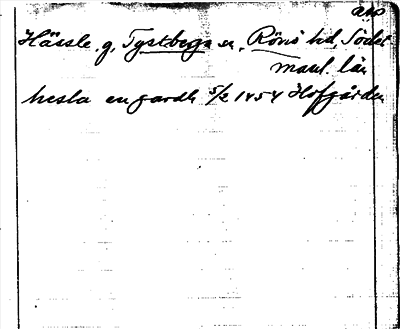 Hässle. g, Tystberga sn, Rönö hd, Söder
manl. län
hesla en gardh 5/2 1454 Hofgården